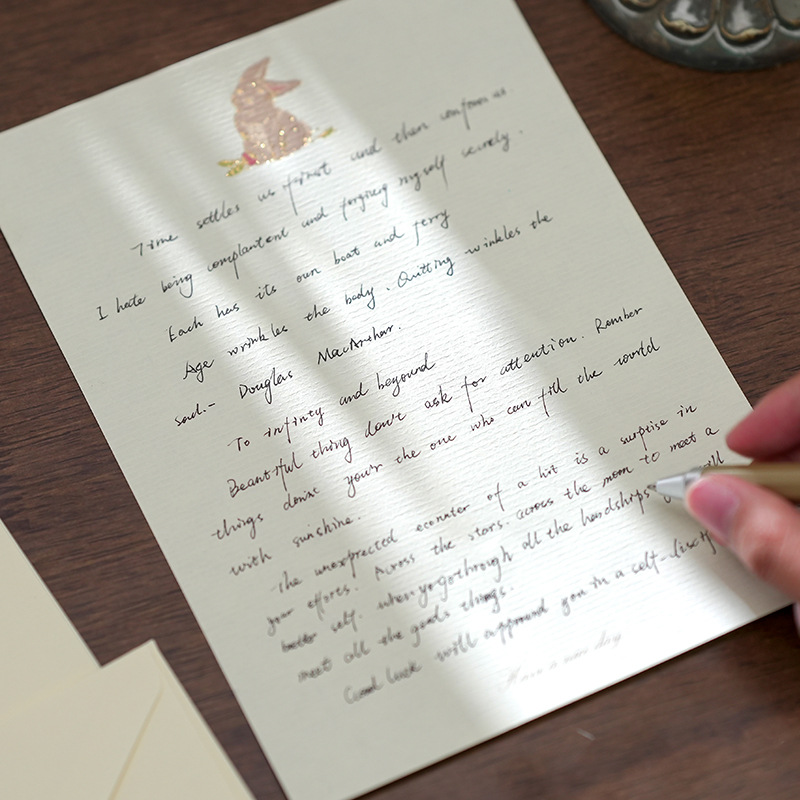 Time settles us first and then confuses us.
I hate being complantent and forgiving myself secretly.
Each has its own boat and ferry
Age wrinkles the body. Quitting wrinkles the
soul.- Douglas MacArthar.
To infinty and beyound
Beautiful thing don't ask for attention. Rember
things donne your the one who can fill the world
with sunshine.
The unexprected ecounter of a hit is a surprise in
your efforts. Across the stars. across the moon to meet a
better self. when yo go through all the handships will
meet all the goods things.
Good luck will appround you in a self-discipl
Have a nice day